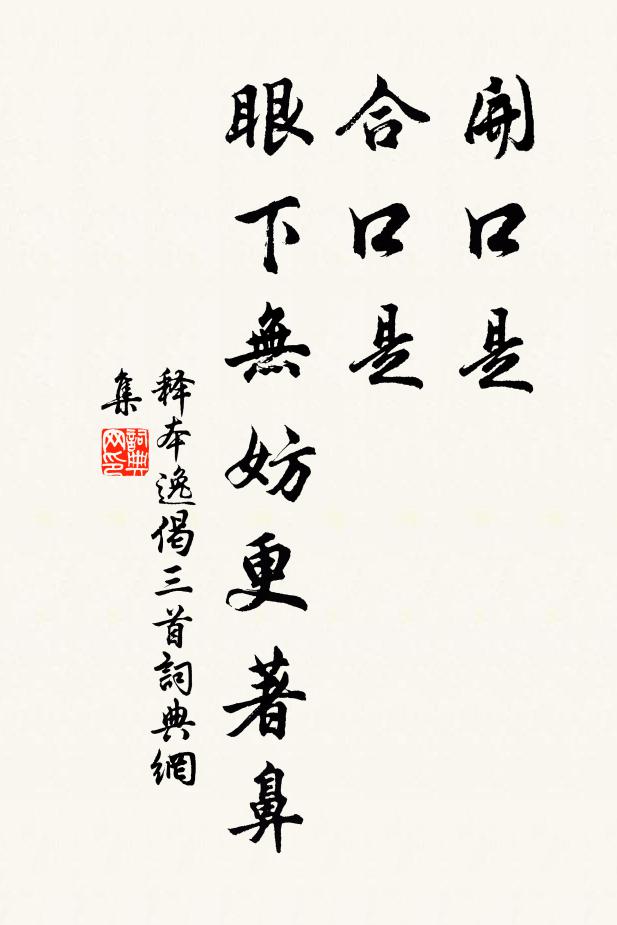 開口是
合口是
眼下無妨更著鼻
释本逸偈三首詞典網
集
詞典
网印